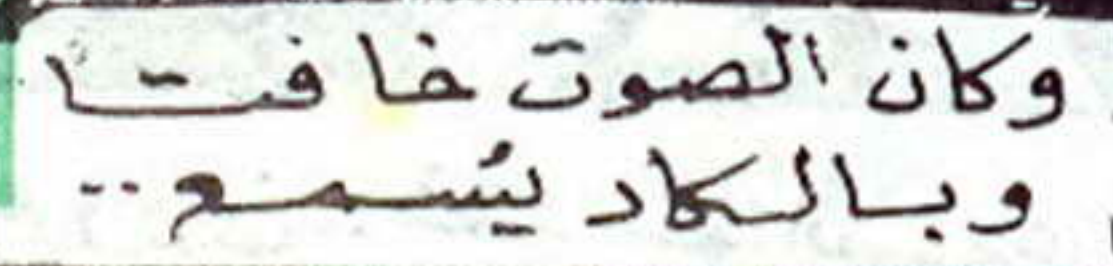 وكان الصوت خافتا
وبالكاد يُسمع..